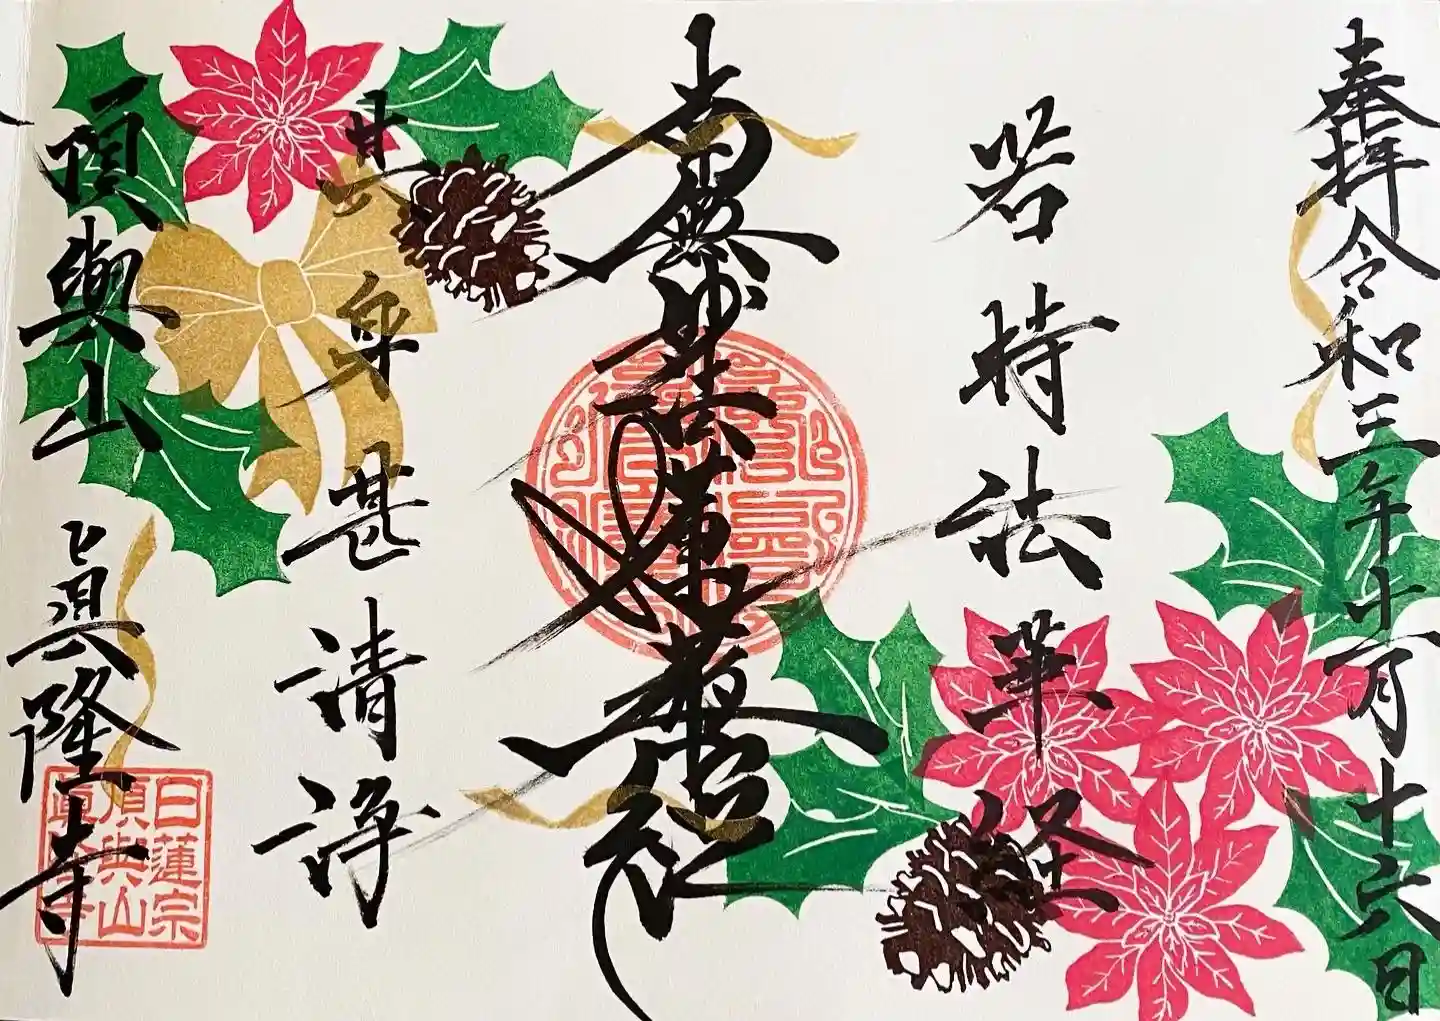 奉拝 令和三年十一月十六日
若持法華経
南無妙法蓮華経
其身甚清浄
頂輿山 真隆寺
日蓮宗
頂輿山